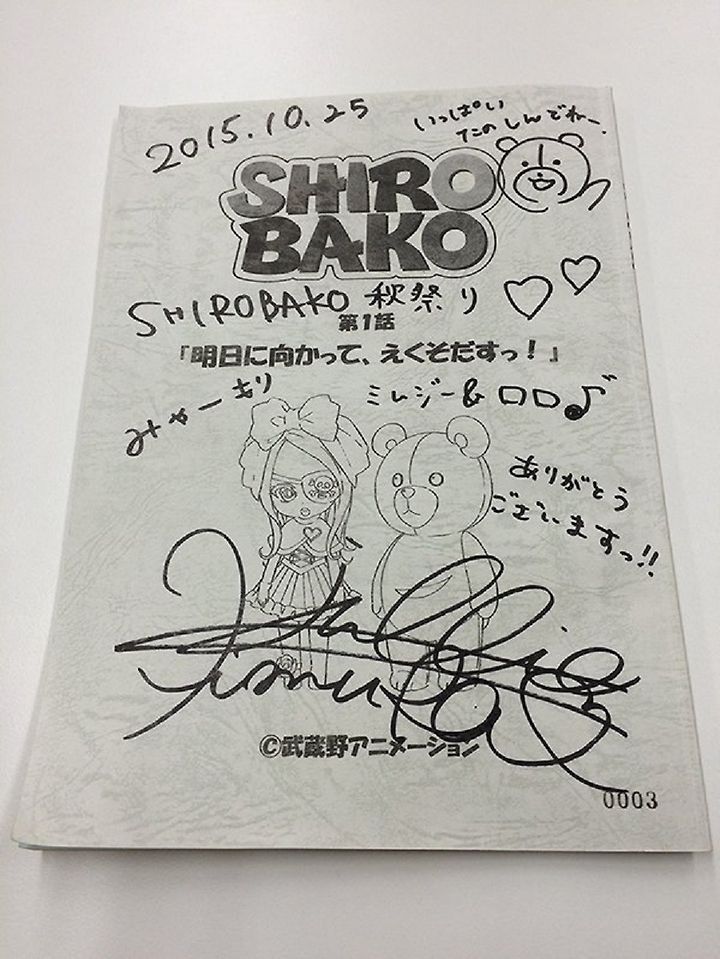 2015.10.25
いっぱい
たのしんでねー。
SHIRO
BAKO
SHIROBAKO 秋祭り ♡♡
第1話
「明日に向かって、えくそだすっ！」
みゃーもり
ミムジー&ロロ♪
ありがとう
ございますっ!!
©武蔵野アニメーション
0003